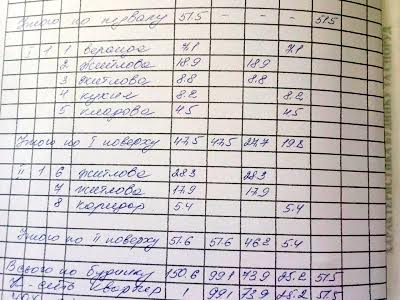 Итого по підвалу 51.5 - - - 51.5
I 1 1 веранда 7.1 7.1
2 житлова 18.9 18.9
3 житлова 8.8 8.8
4 кухня 8.2 8.2
5 кладова 4.5 4.5
Итого по I поверху 47.5 47.5 27.7 19.8
II 1 6 житлова 28.3 28.3
7 житлова 17.9 17.9
8 коридор 5.4 5.4
Итого по II поверху 51.6 51.6 46.2 5.4
Всього по будинку 150.6 99.1 73.9 25.2 51.5
К-сть квартир 1 99.1 73.9 25.2 51.5
ХАРАКТЕРИСТИКА БУДИНКУ ТА СПОРУД